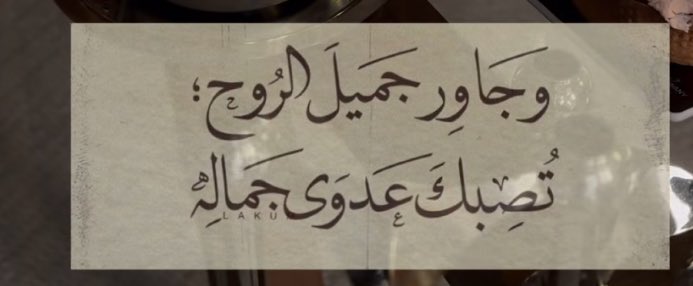 وَجَاوِر جَمَيلَ الرُوح؛
تُصِبكَ عَدوَى جَمالِهِ
LAKU